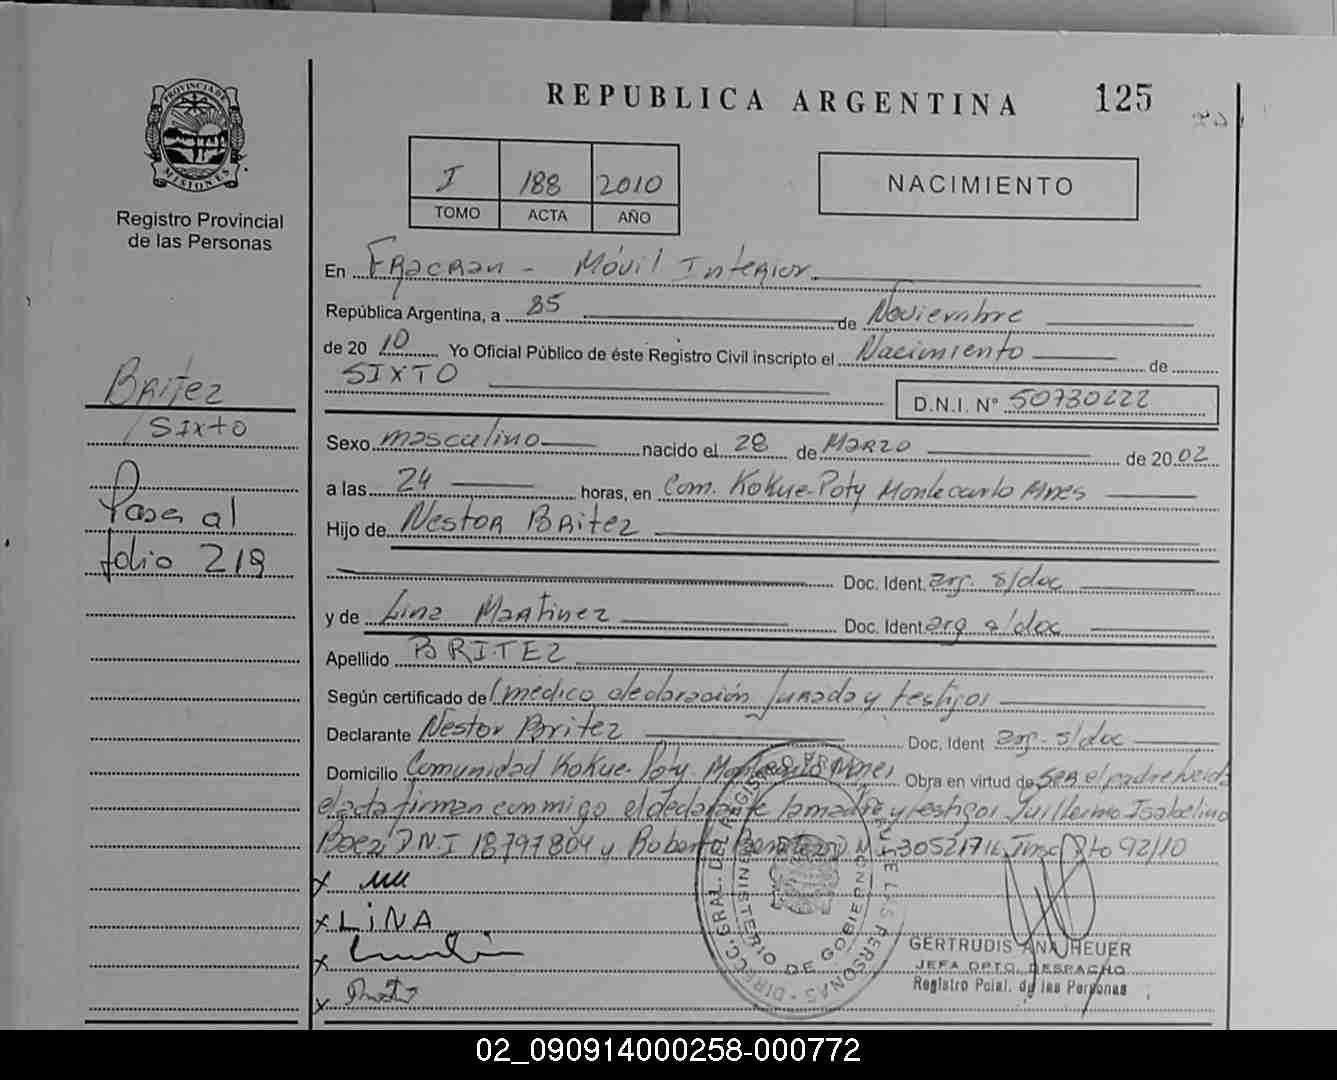 REPUBLICA ARGENTINA 125
PROVINCIA DE MISIONES
Registro Provincial
de las Personas
I 188 2010
TOMO ACTA AÑO
NACIMIENTO
En Fracran - Móvil Interior
República Argentina, a 05 de Noviembre
de 20 10 Yo Oficial Público de éste Registro Civil inscripto el Nacimiento de
SIXTO
D.N.I. Nº 50730222
Britez
Sixto
Pasa al
folio 219
Sexo masculino nacido el 28 de Marzo de 2002
a las 24 horas, en Com. Kokue-Poty Montecarlo Mnes
Hijo de Nestor Britez
Doc. Ident. arg. s/doc
y de Lina Martinez Doc. Ident. arg s/doc
Apellido BRITEZ
Según certificado del médico declaración Jurada y testigos
Declarante Nestor Britez Doc. Ident arg. s/doc
Domicilio Comunidad Kokue-Poty Montecarlo Mnes Obra en virtud de ser el padre leida
el acta firman conmigo el declarante la madre y testigos Guillermo Isabelino
Baez D.N.I 18797804 y Roberto Benitez D.N.I 30521716 Insc Dto 92/10
x
x LINA
x
x
DIRECC. GRAL. DEL REGISTRO PROV. DE LAS PERSONAS
MINISTERIO DE GOBIERNO
GERTRUDIS ANA HEUER
JEFA DPTO. DESPACHO
Registro Pcial. de las Personas
02_090914000258-000772